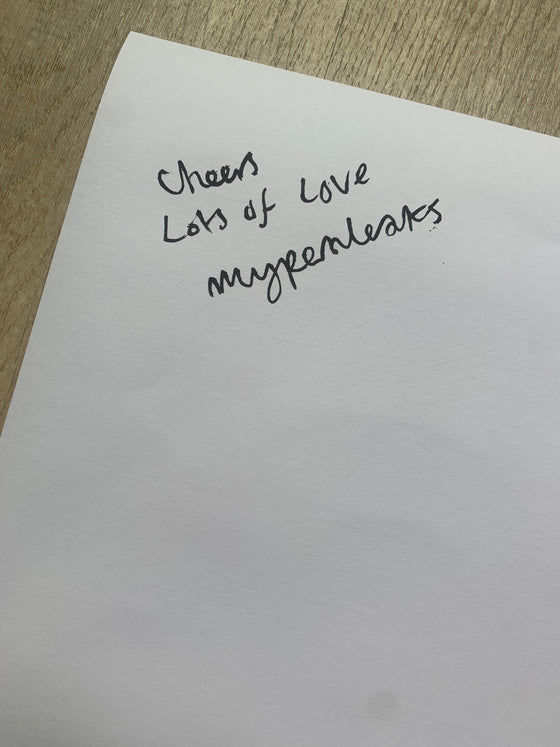 Cheers
Lots of Love
mypenleaks